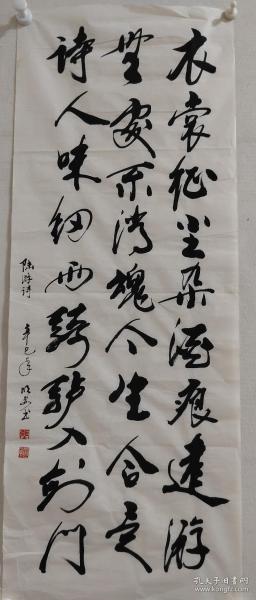 衣裳征尘杂酒痕遠游
無處不消魂今生合是
诗人味细雨骑驴入剑门
陆游诗 辛巳年
孔夫子旧书网